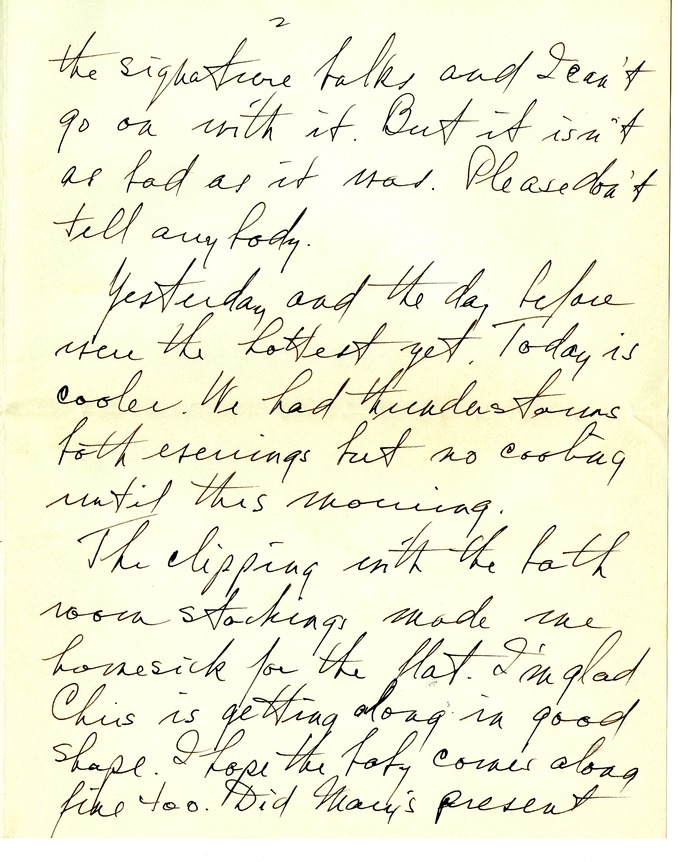 2
the signature balks and I can't
go on with it. But it isn't
as bad as it was. Please don't
tell anybody.
Yesterday and the day before
were the hottest yet. Today is
cooler. We had thunderstorms
both evenings but no cooling
until this morning.
The clipping with the bath
room stockings made me
homesick for the flat. I'm glad
Chris is getting along in good
shape. I hope the baby comes along
fine too. Did Mary's present